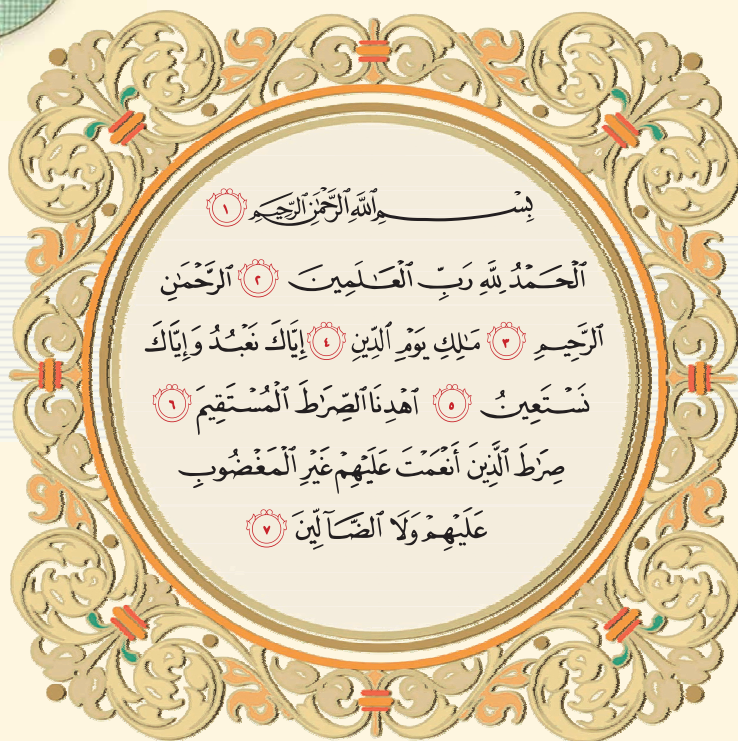 بِسۡمِ ٱللَّهِ ٱلرَّحۡمَٰنِ ٱلرَّحِيمِ ١
ٱلۡحَمۡدُ لِلَّهِ رَبِّ ٱلۡعَٰلَمِينَ ٢ ٱلرَّحۡمَٰنِ
ٱلرَّحِيمِ ٣ مَٰلِكِ يَوۡمِ ٱلدِّينِ ٤ إِيَّاكَ نَعۡبُدُ وَإِيَّاكَ
نَسۡتَعِينُ ٥ ٱهۡدِنَا ٱلصِّرَٰطَ ٱلۡمُسۡتَقِيمَ ٦
صِرَٰطَ ٱلَّذِينَ أَنۡعَمۡتَ عَلَيۡهِمۡ غَيۡرِ ٱلۡمَغۡضُوبِ
عَلَيۡهِمۡ وَلَا ٱلضَّآلِّينَ ٧